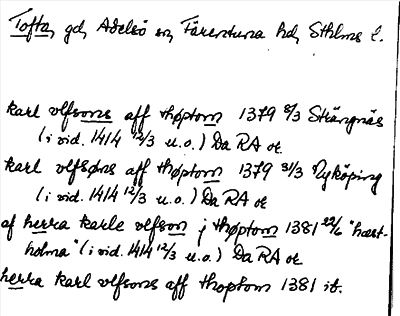 Tofta, gd, Adelsö sn, Färentuna hd, Sthlms l.
karl vlfsons aff thøptom 1379 8/3 Strängnäs
(i vid. 1414 12/3 u.o.) Da RA or
karl vlfsøns aff thøptom 1379 31/3 Nyköping
(i vid. 1414 12/3 u.o.) Da RA or
af herra karle vlfson j thøptom 1381 22/6 "hæst-
holma" (i vid. 1414 12/3 u.o.) Da RA or
herra karl vlfsons aff thoptom 1381 it.